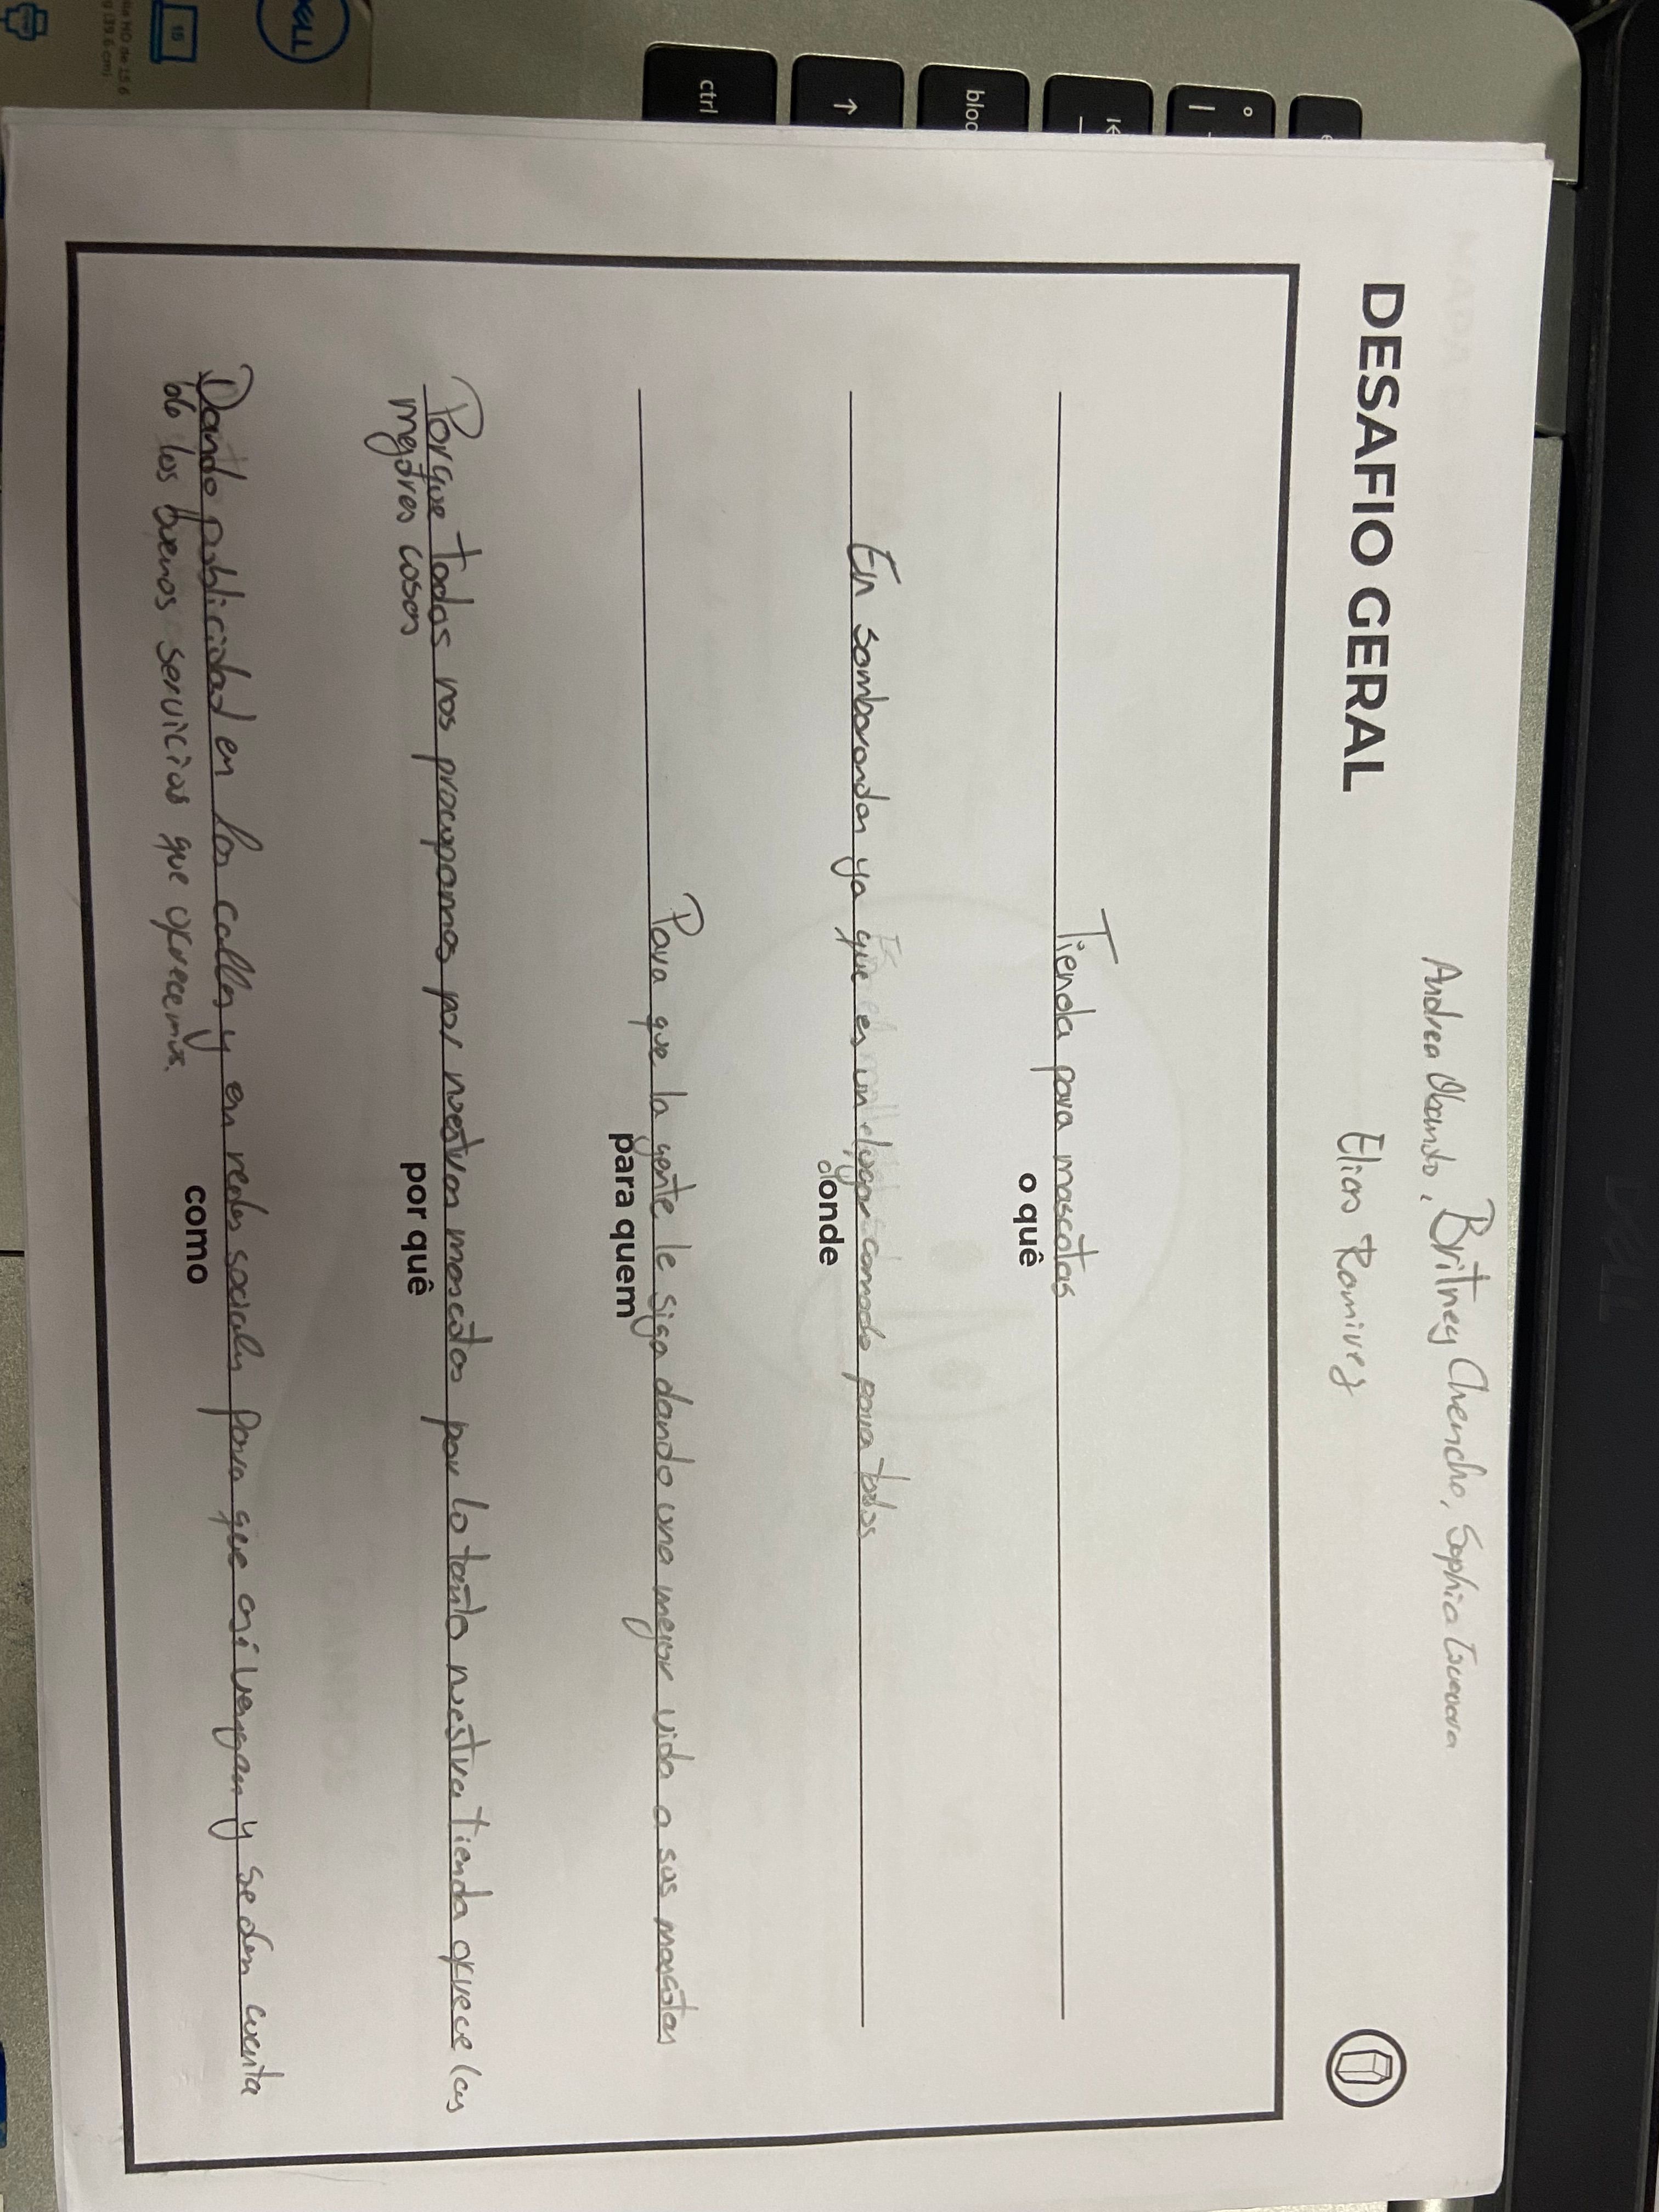 Andrea Obando, Britney Chencho, Sophia Guevara
DESAFIO GERAL
Elias Ramirez
Tienda para mascotas
o quê
En samborondon ya que es un lugar comodo para todos
donde
Para que la gente le siga dando una mejor vida a sus mascotas
para quem
Porque todos nos procupamos por nuestras mascotas por lo tanto nuestra tienda ofrece las
mejores cosas
por quê
Dando publicidad en las calles y en redes sociales para que asi vengan y se den cuenta
de los buenos servicios que ofrecemos.
como
ctrl
↑
bloq
DELL
15